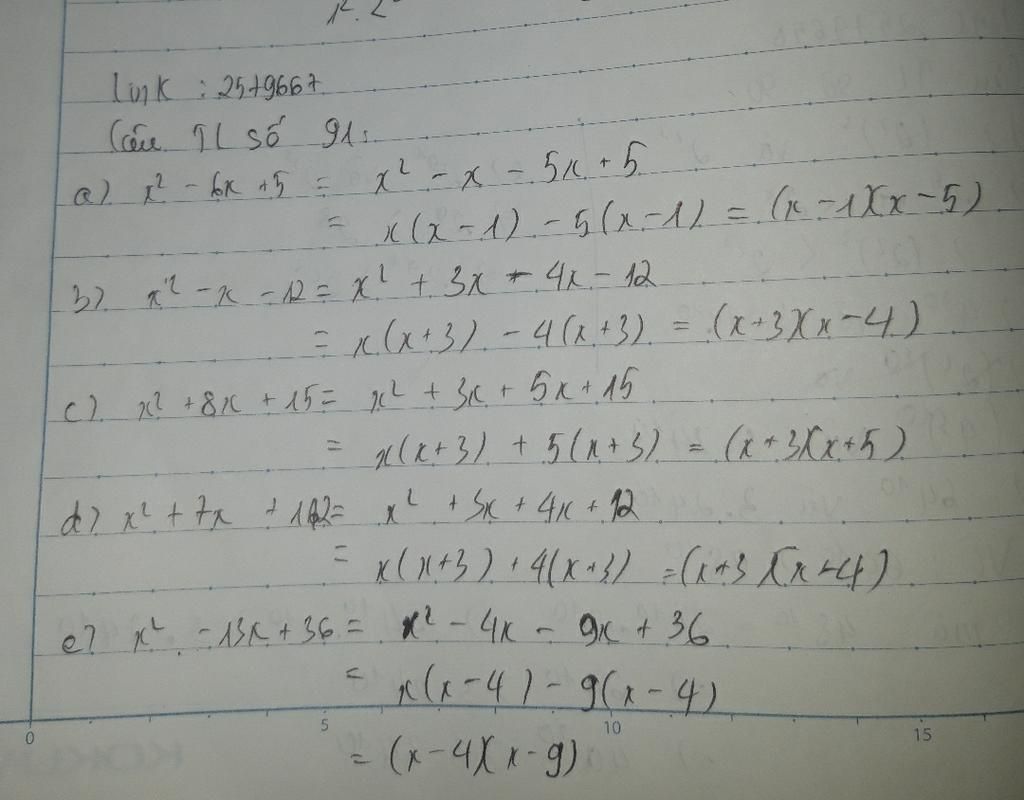 link : 2579667
Câu TL số 91:
a) x² - 6x + 5 = x² - x - 5x + 5
= x(x - 1) - 5(x - 1) = (x - 1)(x - 5)
b) x² - x - 12 = x² + 3x - 4x - 12
= x(x + 3) - 4(x + 3) = (x + 3)(x - 4)
c) x² + 8x + 15 = x² + 3x + 5x + 15
= x(x + 3) + 5(x + 3) = (x + 3)(x + 5)
d) x² + 7x + 12 = x² + 3x + 4x + 12
= x(x + 3) + 4(x + 3) = (x + 3)(x + 4)
e) x² - 13x + 36 = x² - 4x - 9x + 36
= x(x - 4) - 9(x - 4)
0 5 10 15
= (x - 4)(x - 9)